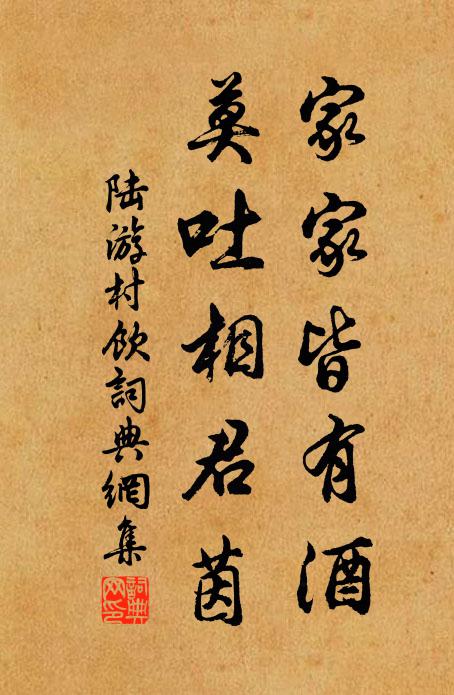 家家皆有酒
莫吐相君茵
陆游村飲詞典網集
詞典網印